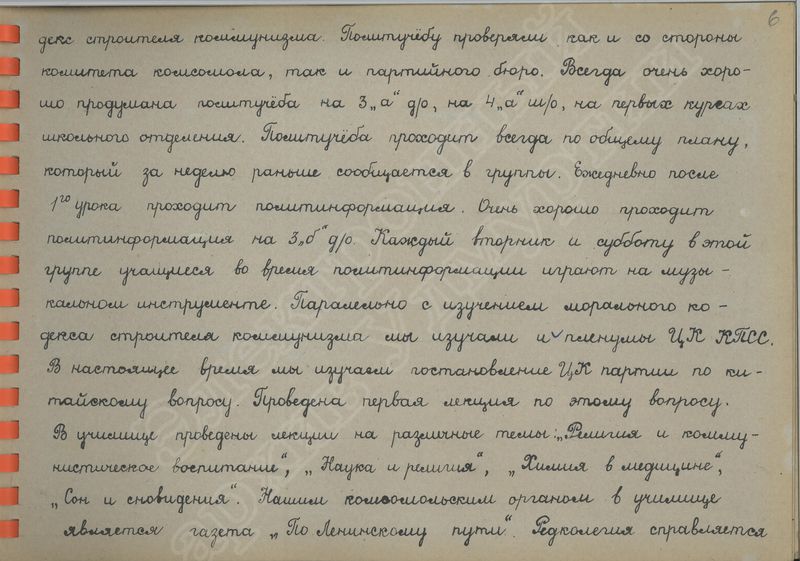 6
декс строителя коммунизма. Политучёбу проверяли как и со стороны
комитета комсомола, так и партийного бюро. Всегда очень хоро-
шо продумана политучёба на 3 „а“ д/о, на 4 „а“ ш/о, на первых курсах
школьного отделения. Политучёба проходит всегда по общему плану,
который за неделю раньше сообщается в группы. Ежедневно после
1го урока проходит политинформация. Очень хорошо проходит
политинформация на 3 „б“ д/о. Каждый вторник и субботу в этой
группе учащиеся во время политинформации играют на музы-
кальном инструменте. Паралельно с изучением морального ко-
декса строителя коммунизма мы изучали и пленумы ЦК КПСС.
В настоящее время мы изучаем постановление ЦК партии по ки-
тайскому вопросу. Проведена первая лекция по этому вопросу.
В училище проведены лекции на различные темы: „Религия и комму-
нистическое воспитание“, „Наука и религия“, „Химия в медицине“,
„Сон и сновидения“. Нашим комсомольским органом в училище
является газета „По Ленинскому пути“. Редколегия справляется